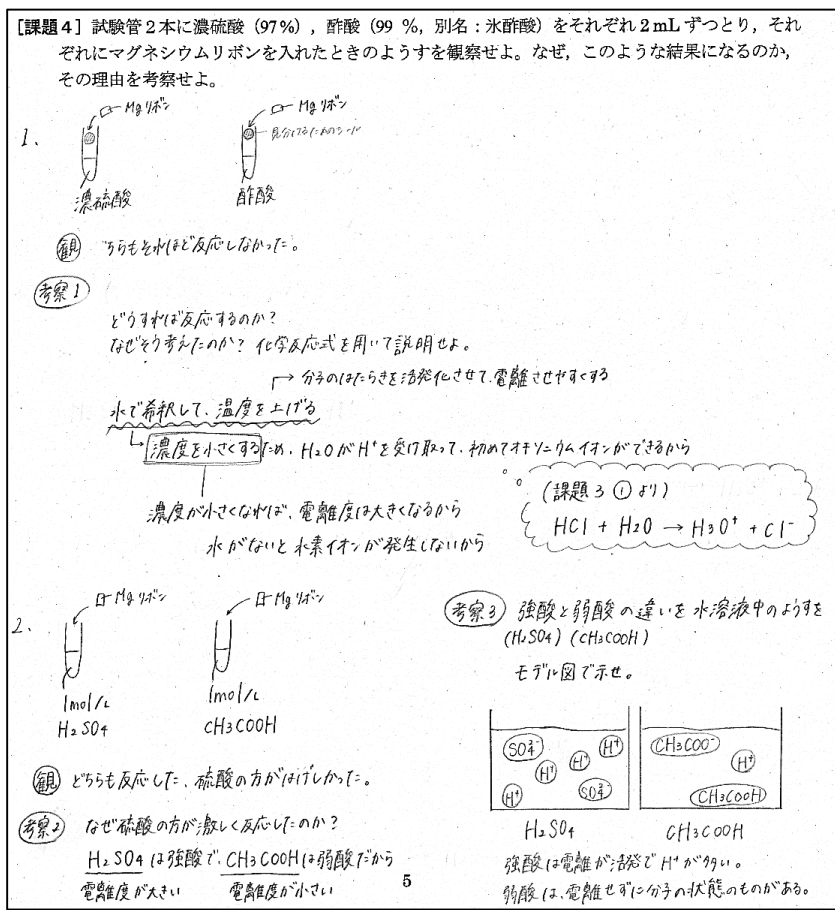 ［課題４］試験管２本に濃硫酸（97％），酢酸（99 ％，別名：氷酢酸）をそれぞれ２mL ずつとり，それ
ぞれにマグネシウムリボンを入れたときのようすを観察せよ。なぜ，このような結果になるのか，
その理由を考察せよ。
1.
Mgリボン
Mgリボン
見分けるためのシール
濃硫酸
酢酸
観 どちらもそれほど反応しなかった。
考察1
どうすれば反応するのか？
なぜそう考えたのか？ 化学反応式を用いて説明せよ。
→ 分子のはたらきを活発化させて、電離させやすくする
水で希釈して、温度を上げる
濃度を小さくするため、H2OがH+を受け取って、初めてオキソニウムイオンができるから
（課題3 ①より）
HCl + H2O → H3O+ + Cl-
濃度が小さくなれば、電離度は大きくなるから
水がないと水素イオンが発生しないから
2.
Mgリボン
Mgリボン
1mol/L
H2SO4
1mol/L
CH3COOH
観 どちらも反応した、硫酸の方がはげしかった。
考察2 なぜ硫酸の方が激しく反応したのか？
H2SO4は強酸で、CH3COOHは弱酸だから
電離度が大きい 電離度が小さい
考察3 強酸と弱酸の違いを水溶液中のようすを
(H2SO4) (CH3COOH)
モデル図で示せ。
SO4 2- H+ H+ H+ H+ SO4 2-
CH3COO- H+ CH3COOH
H2SO4
CH3COOH
強酸は電離が活発でH+が多い。
弱酸は、電離せずに分子の状態のものがある。
5